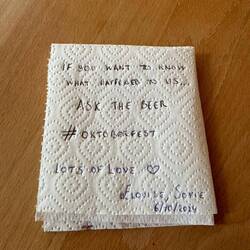 IF YOU WANT TO KNOW
WHAT HAPPENED TO US...
ASK THE BEER
#OKTOBERFEST
LOTS OF LOVE ♡
ELOUISE, SOFIE
6/10/2024